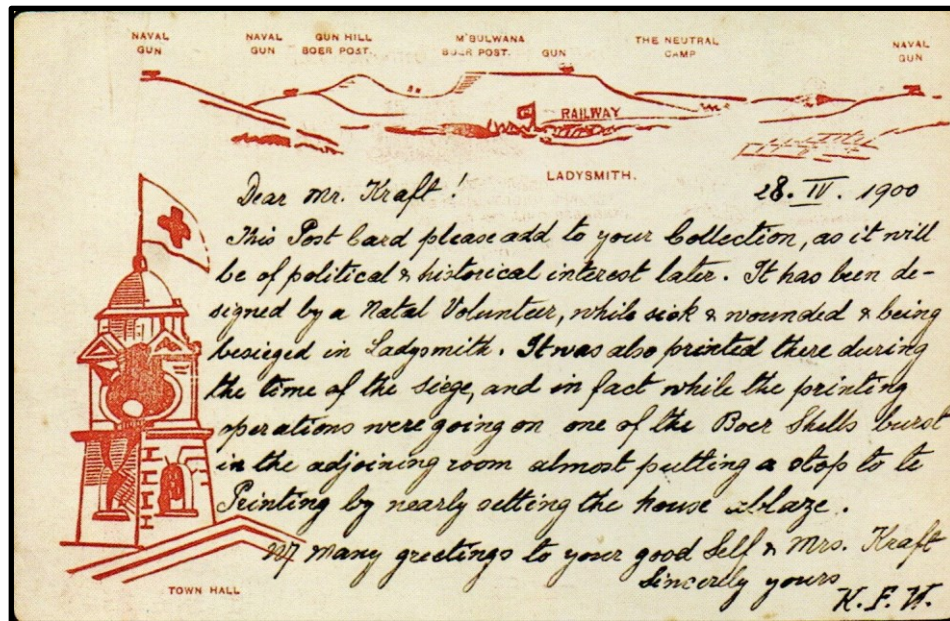 NAVAL GUN
NAVAL GUN
GUN HILL BOER POST.
M'BULWANA BOER POST.
GUN
THE NEUTRAL CAMP
NAVAL GUN
RAILWAY
LADYSMITH.
Dear Mr. Kraft! 28. IV. 1900
This Post Card please add to your Collection, as it will
be of political & historical interest later. It has been de-
signed by a Natal Volunteer, while sick & wounded & being
besieged in Ladysmith. It was also printed there during
the time of the siege, and in fact while the printing
operations were going on one of the Boer Shells burst
in the adjoining room almost putting a stop to te
Printing by nearly setting the house ablaze.
W/ many greetings to your good Self & Mrs. Kraft
Sincerely yours
K. F.
TOWN HALL